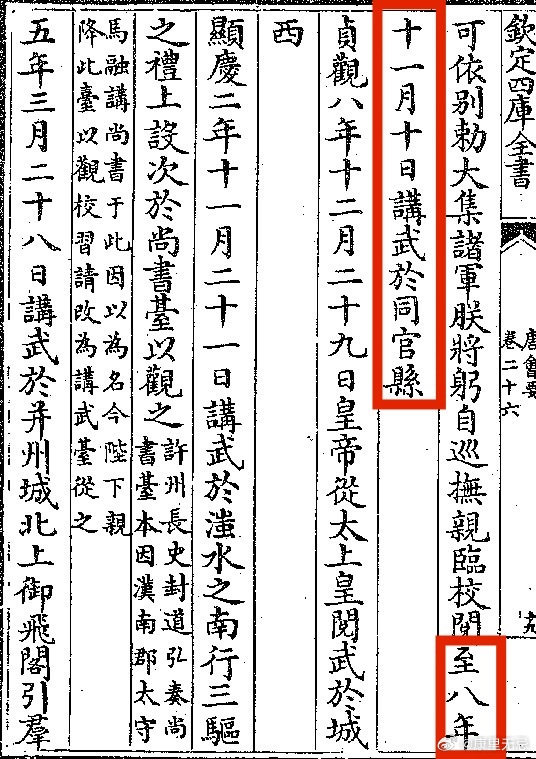 欽定四庫全書
唐會要
卷二十六
十九
可依别敕大集諸軍朕將躬自巡撫親臨校閱至八年
十一月十日講武於同官縣
貞觀八年十二月二十九日皇帝從太上皇閱武於城
西
顯慶二年十一月二十一日講武於滍水之南行三驅
之禮上設次於尚書臺以觀之
許州長史封道弘奏尚
書臺本因漢南郡太守
馬融講尚書于此因以為名今陛下親
降此臺以觀校習請改為講武臺從之
五年三月二十八日講武於并州城北上御飛閣引羣